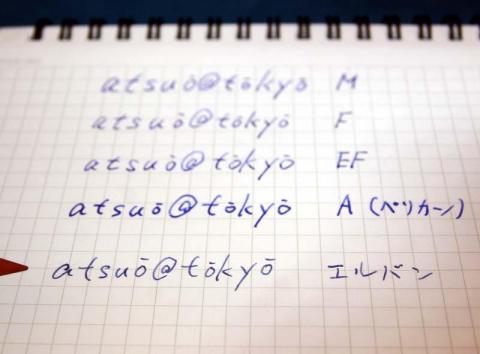 atsuō@tōkyō M
atsuō@tōkyō F
atsuō@tōkyō EF
atsuō@tōkyō A (ペリカーン)
atsuō@tōkyō エルバン